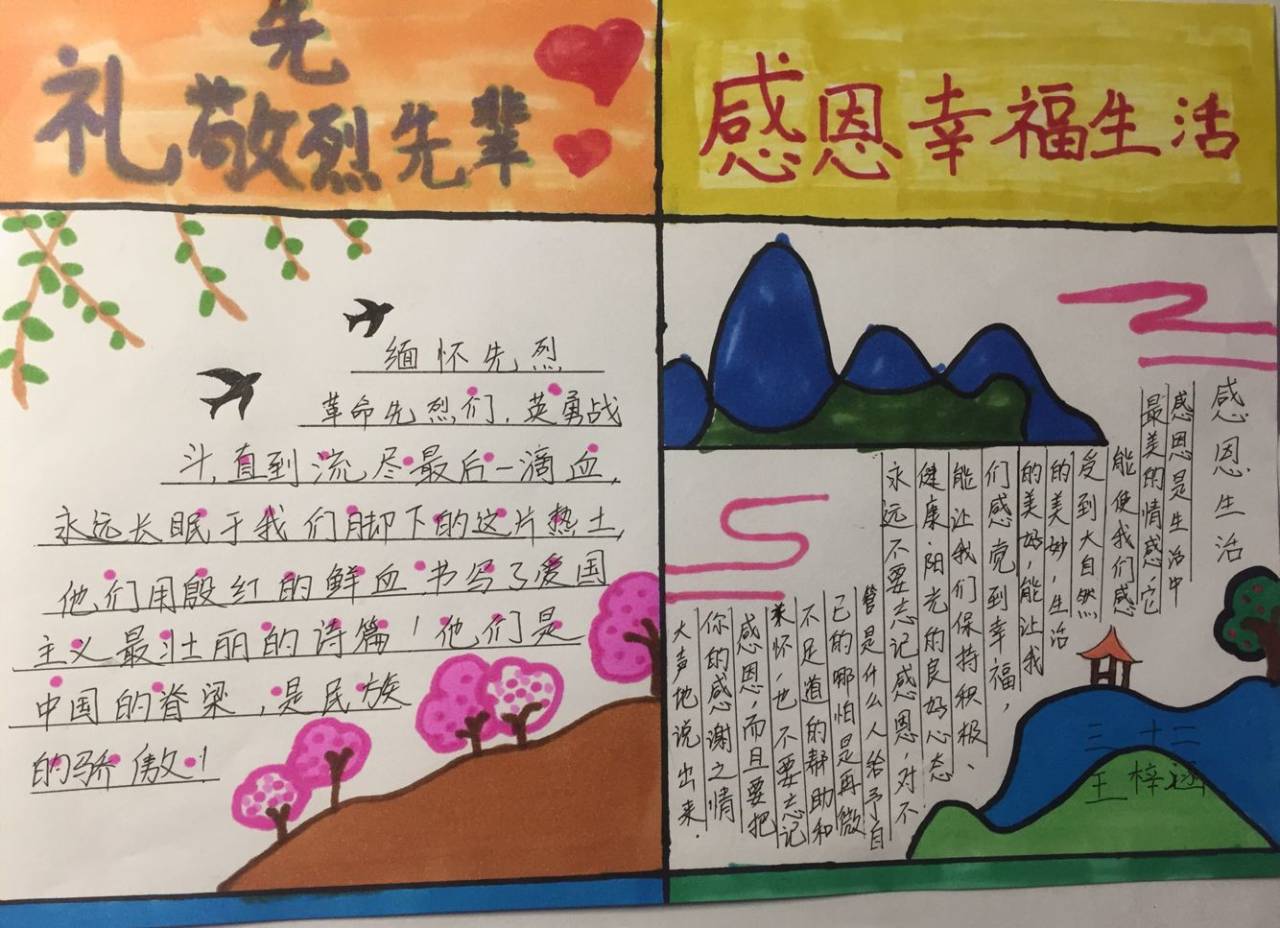 先
礼敬烈先辈
缅怀先烈
革命先烈们，英勇战
斗，直到流尽最后一滴血，
永远长眠于我们脚下的这片热土，
他们用殷红的鲜血书写了爱国
主义最壮丽的诗篇！他们是
中国的脊梁，是民族
的骄傲！
感恩幸福生活
感恩生活
感恩是生活中
最美的情感，它
能使我们感
受到大自然
的美妙，生活
的美好，能让我
们感觉到幸福，
能让我们保持积极、
健康、阳光的良好心态
永远不要忘记感恩，对不
管是什么人给予自
己的哪怕是再微
不足道的帮助和
关怀，也不要忘记
感恩，而且要把
你的感谢之情
大声地说出来.
三 十二
王梓涵